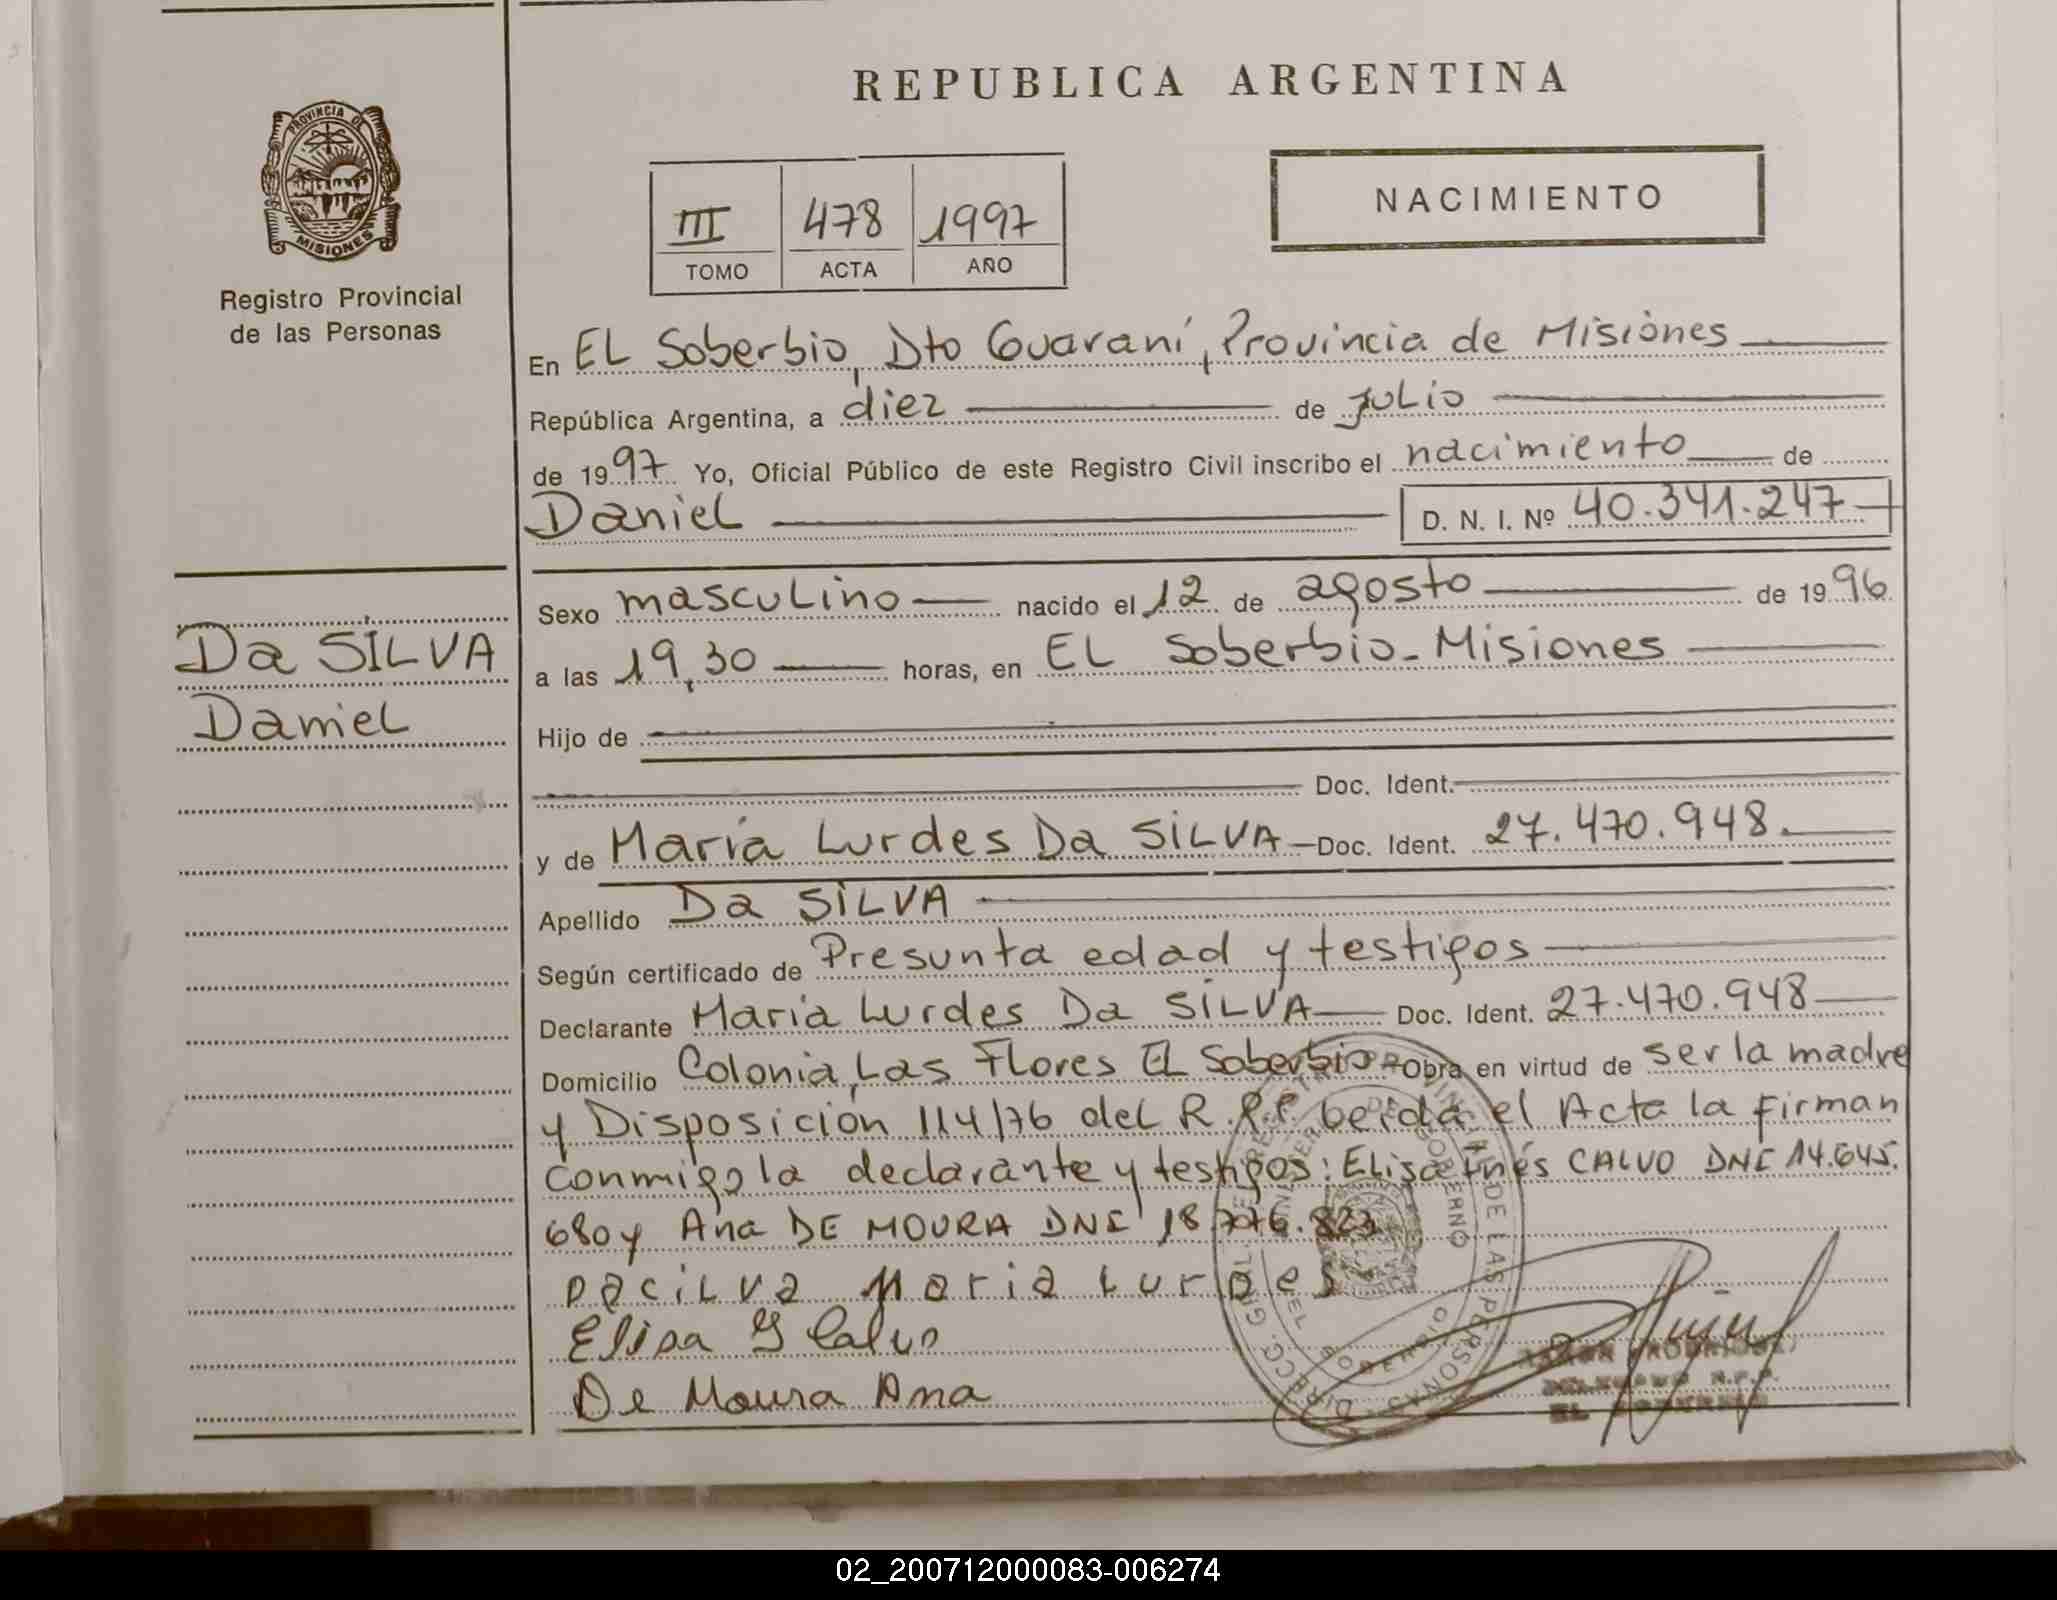 REPUBLICA ARGENTINA
PROVINCIA DE
MISIONES
Registro Provincial
de las Personas
III 478 1997
TOMO ACTA AÑO
NACIMIENTO
En EL Soberbio, Dto Guaraní, Provincia de Misiones
República Argentina, a diez de JULio
de 1997 Yo, Oficial Público de este Registro Civil inscribo el nacimiento de
Daniel D. N. I. Nº 40.341.247
Da SILVA
Daniel
Sexo masculino nacido el 12 de agosto de 1996
a las 19,30 horas, en EL Soberbio-Misiones
Hijo de
Doc. Ident.
y de María Lurdes Da SILVA Doc. Ident. 27.470.948.
Apellido Da SILVA
Según certificado de Presunta edad y testigos
Declarante María Lurdes Da SILVA Doc. Ident. 27.470.948
Domicilio Colonia, Las Flores EL Soberbio Obra en virtud de ser la madre
y Disposición 114/76 del R.P.P. beída el Acta la firman
conmigo la declarante y testigos: Elisa Inés CALVO DNI 14.645.
680 y Ana DE MOURA DNI 18.776.823
DaciLva Maria Lurdes
Elisa Y Calvo
De Moura Ana
DIRECC. GRAL. DEL REGISTRO PROVINCIAL DE LAS PERSONAS
GOBIERNO
EL SOBERBIO
RODRIGUEZ
DELEGADO R.P.P.
EL SOBERBIO
02_200712000083-006274